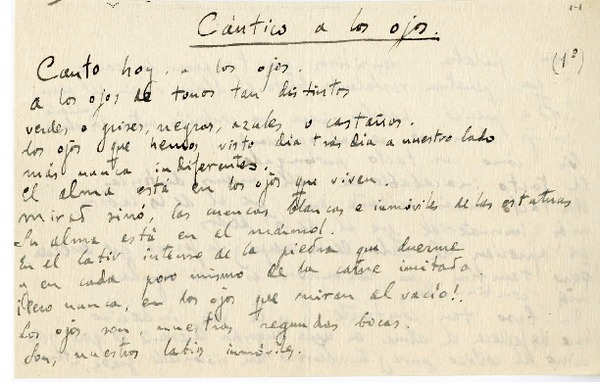 Cántico a los ojos.
(1º)
Canto hoy. a los ojos.
a los ojos de tonos tan distintos
verdes o grises, negros, azules o castaños.
los ojos que hemos visto dia tras dia a nuestro lado
más nunca indiferentes.
El alma está en los ojos que viven.
Mirad sinó, las cuencas blancas e inmóviles de las estatuas
Su alma está en el mármol.
En el latir intenso de la piedra que duerme
y en cada poro mismo de la carne imitada.
¡Pero nunca, en dos ojos que miran al vacío!.
Los ojos son, nuestras segundas bocas.
Son, nuestros labios inmóviles.